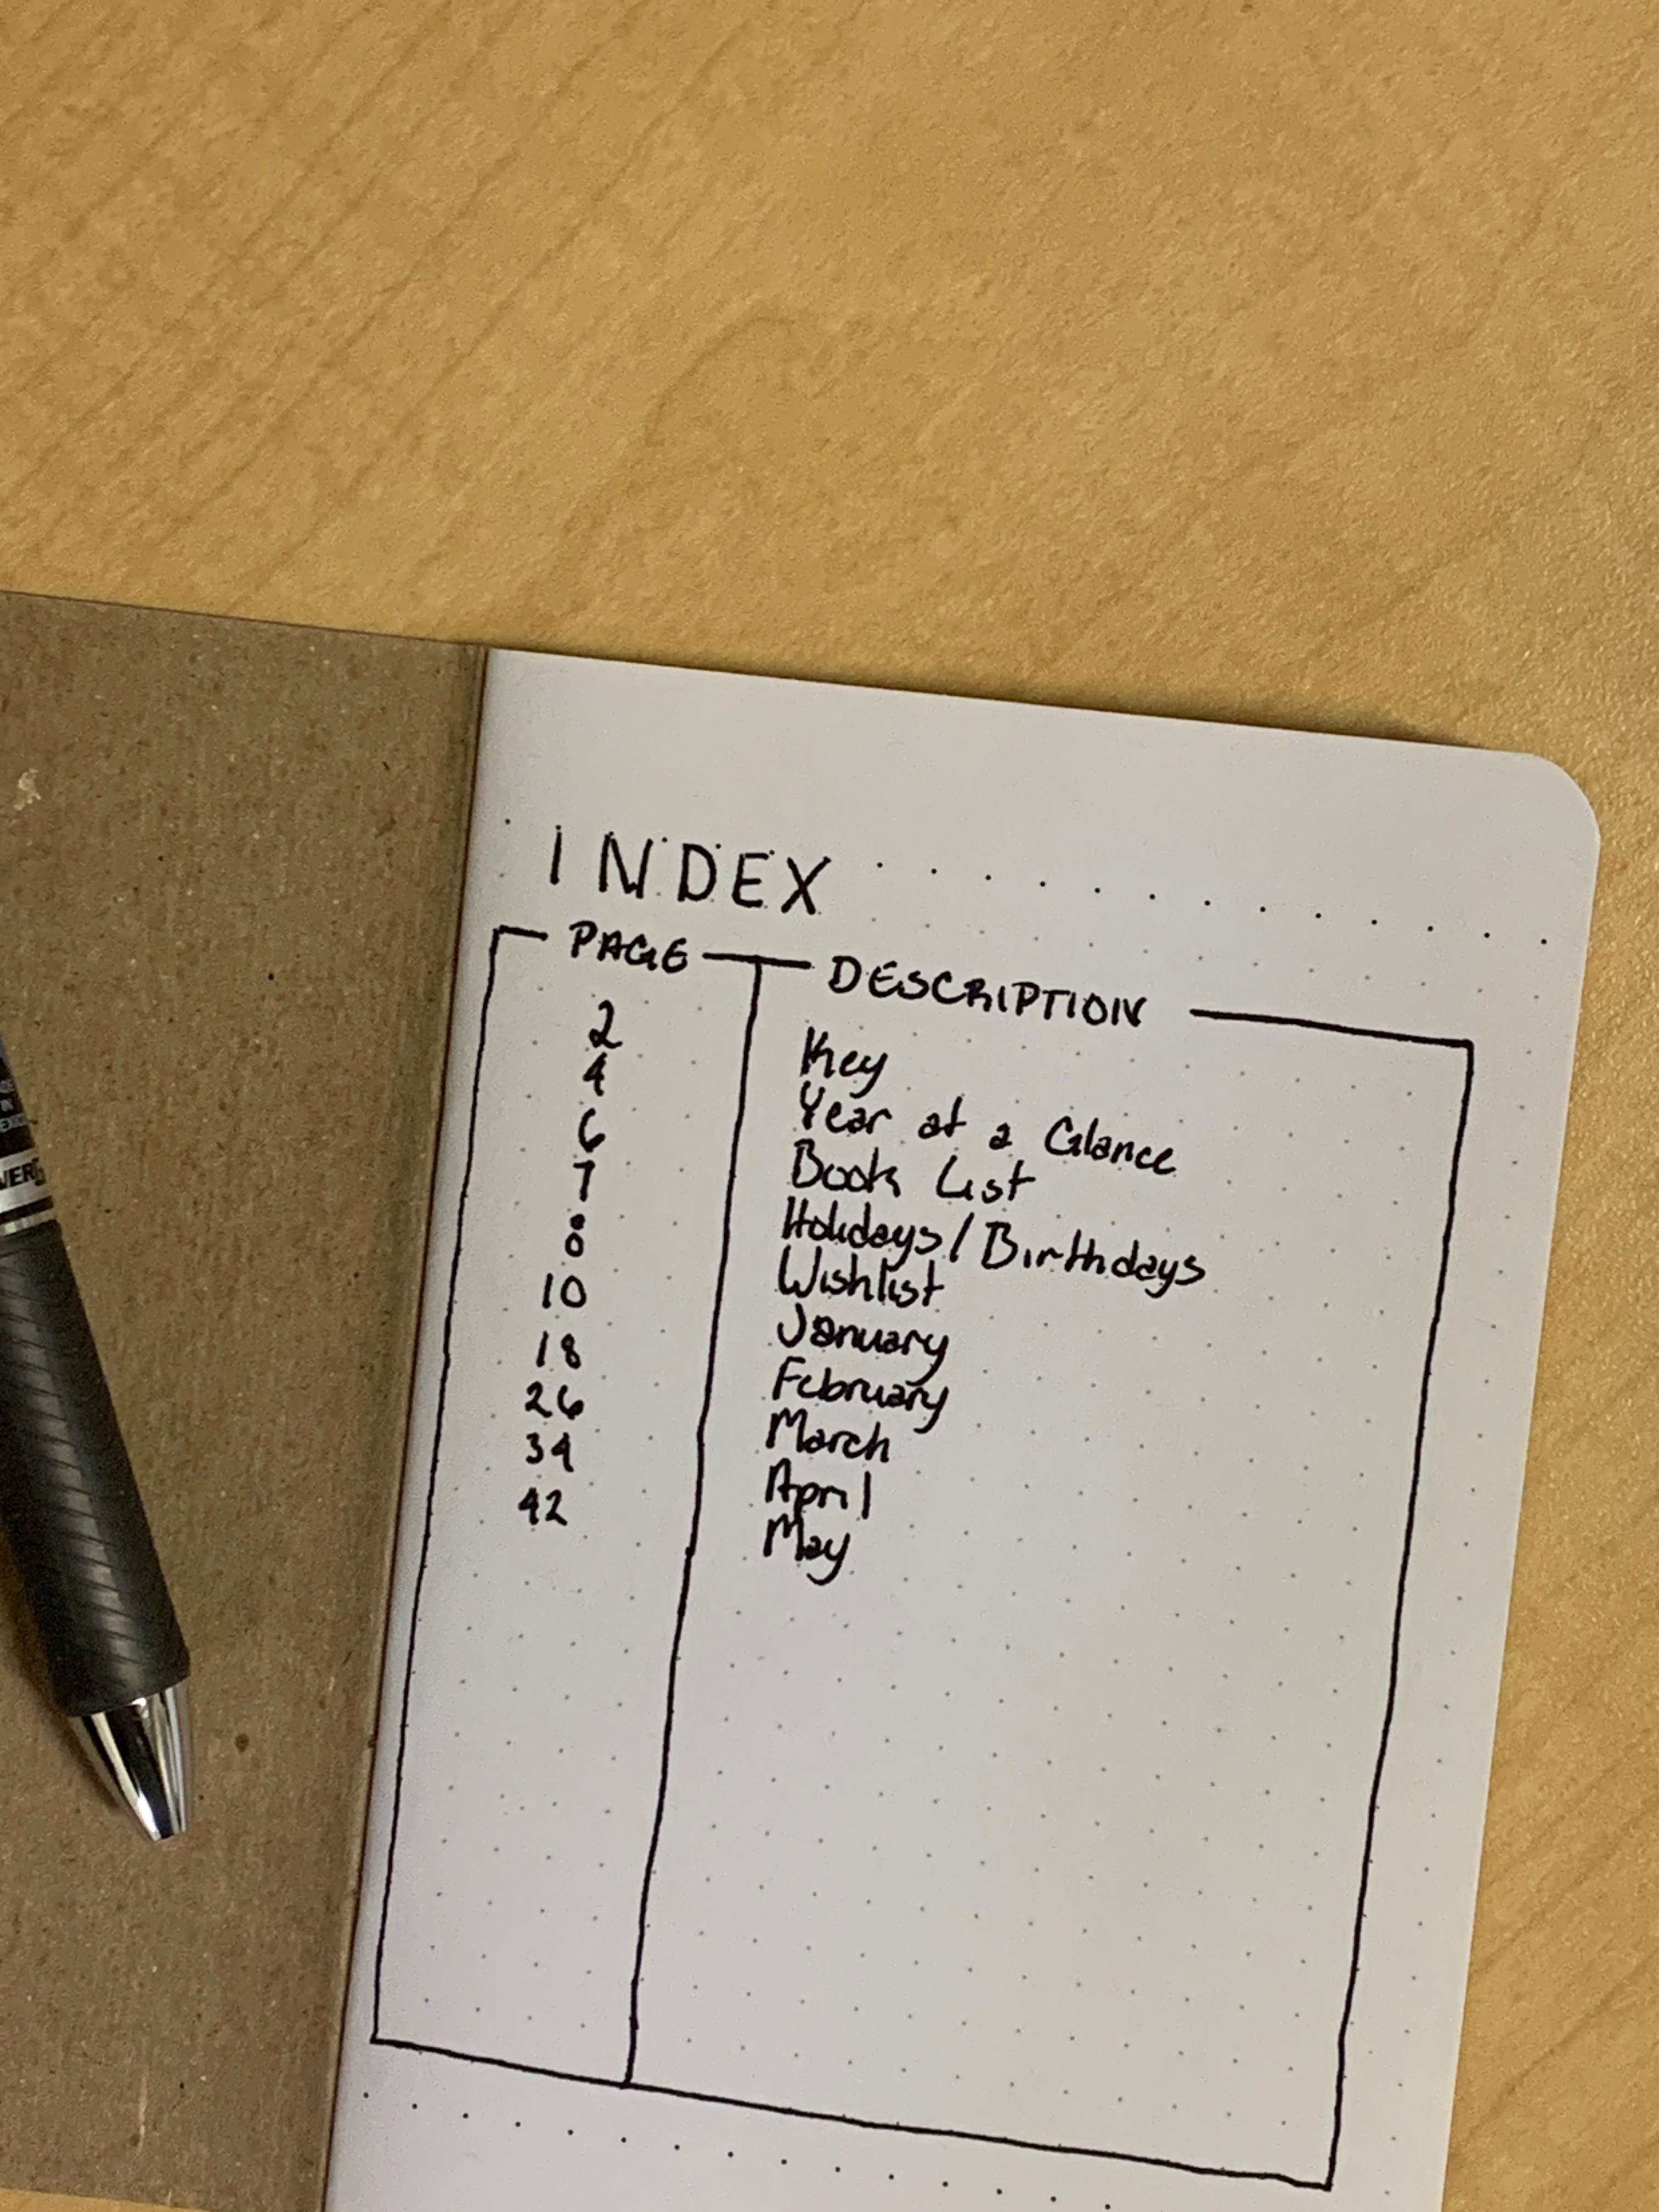 INDEX
PAGE DESCRIPTION
2 Key
4 Year at a Glance
6 Book List
7 Holidays/Birthdays
8 Wishlist
10 January
18 February
26 March
34 April
42 May